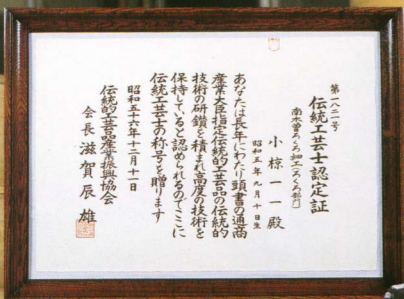 第一八二一号
伝統工芸士認定証
南木曽ろくろ細工(ろくろ部門)
小椋一一殿
昭和五年九月十日生
あなたは長年にわたり頭書の通商
産業大臣指定伝統的工芸品の伝統的
技術の研鑽を積まれ高度の技術を
保持していると認められるのでここに
伝統工芸士の称号を贈ります
昭和五十六年十二月十一日
伝統的工芸品産業振興協会
会長 滋賀辰雄